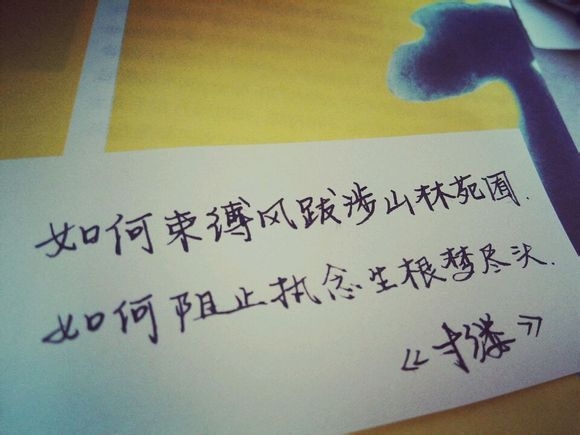 如何束缚风跋涉山林苑囿.
如何阻止执念生根梦尽头.
《才缕》